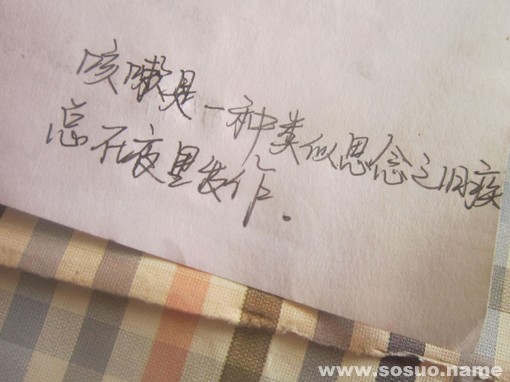 咳嗽是一种类似思念之旧疾
总在夜里发作.
www.sosuo.name